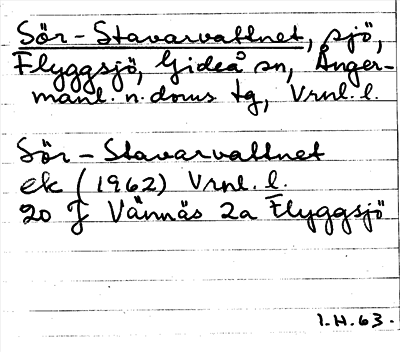 Sör-Stavarvattnet, sjö,
Flyggsjö, Gideå sn, Ånger-
manl. n. doms tg, Vrnl. l.
Sör-Stavarvattnet
ek (1962) Vrnl. l.
20 J Vännäs 2a Flyggsjö
I.H.63.